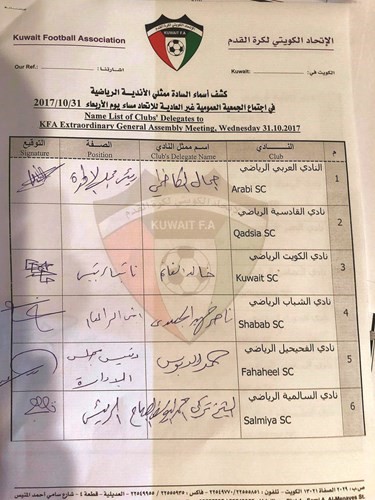 Kuwait Football Association
الإتحاد الكويتي لكرة القدم
KUWAIT F.A
Our Ref.:
إشارتنا:
Kuwait:
الكويت في:
كشف أسماء السادة ممثلي الأندية الرياضية
في إجتماع الجمعية العمومية غير العادية للاتحاد مساء يوم الأربعاء 2017/10/31
Name List of Clubs' Delegates to
KFA Extraordinary General Assembly Meeting, Wednesday 31.10.2017
م
النـــــادي
Club
اسم ممثل النادي
Club's Delegate Name
الصـفـة
Position
التوقيع
Signature
1
النادي العربي الرياضي
Arabi SC
جمال الكاظمي
رئيس مجلس الإدارة
2
نادي القادسية الرياضي
Qadsia SC
KUWAIT F.A
3
نادي الكويت الرياضي
Kuwait SC
خالد الغانم
نائب الرئيس
4
نادي الشباب الرياضي
Shabab SC
ناصر
5
نادي الفحيحيل الرياضي
Fahaheel SC
حمد الدبوس
رئيس مجلس
الإدارة
6
نادي السالمية الرياضي
Salmiya SC
الشيخ تركي
الرئيس